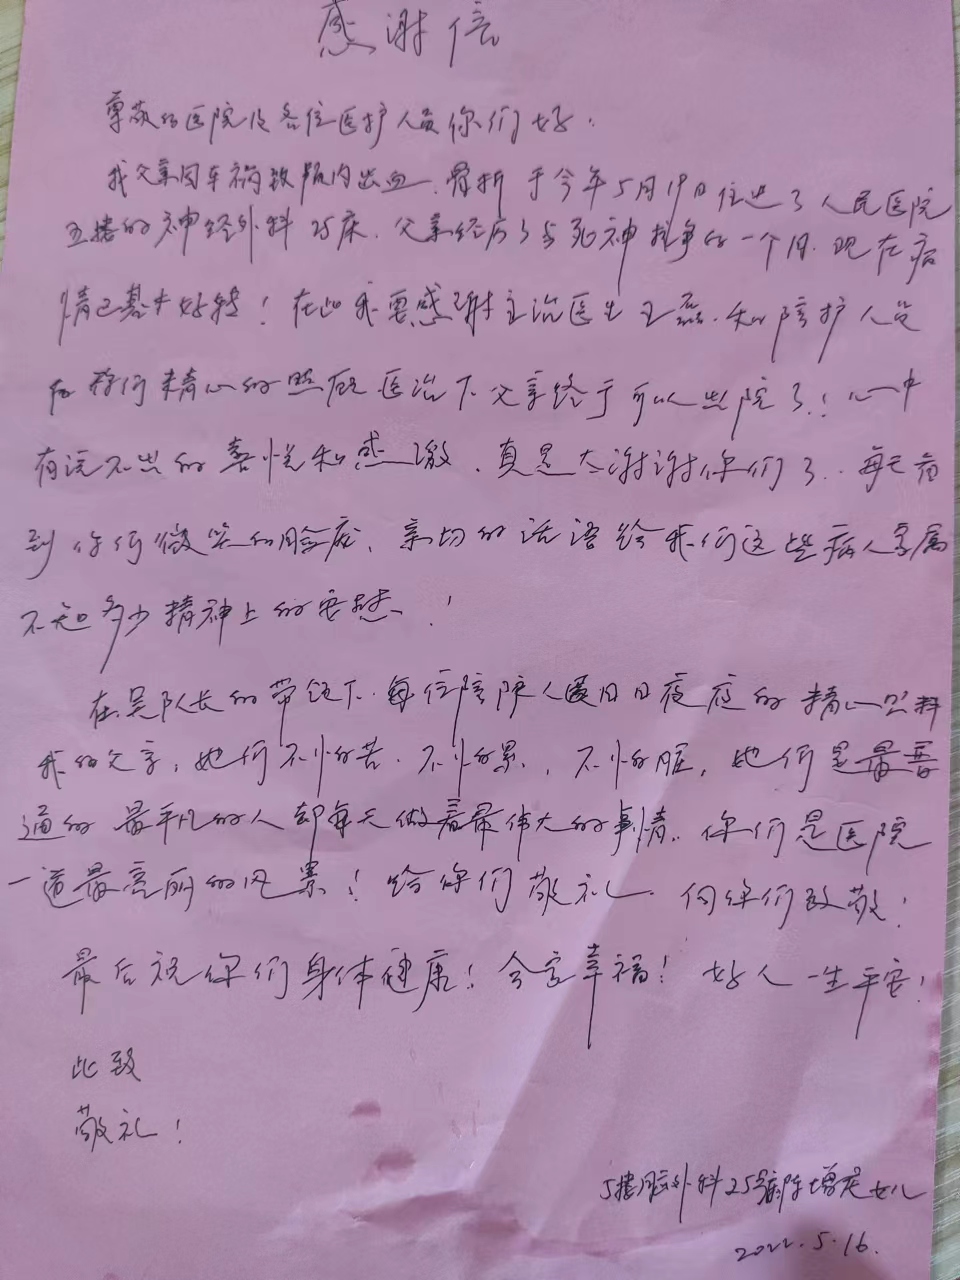 感谢信
尊敬的医院及各位医护人员你们好.
我父亲因车祸致颅内出血.骨折于今年5月19日住进了人民医院
五楼的神经外科25床.父亲经历了与死神抗争的一个月.现在病
情已基本好转!在此我要感谢主治医生王磊.和陪护人员
在你们精心的照顾医治下父亲终于可以出院了!心中
有说不出的喜悦和感激.真是太谢谢你们了.每天看
到你们微笑的脸庞、亲切的话语给我们这些病人家属
不知多少精神上的安慰!
在吴队长的带领下.每位陪护人员日日夜夜的精心照料
我的父亲,她们不怕苦.不怕累,不怕脏,她们是最普
通的最平凡的人却每天做着最伟大的事情.你们是医院
一道最亮丽的风景!给你们敬礼.向你们致敬!
最后祝你们身体健康!合家幸福!好人一生平安!
此致
敬礼!
5楼脑外科25号陈增龙女儿
2022.5.16.